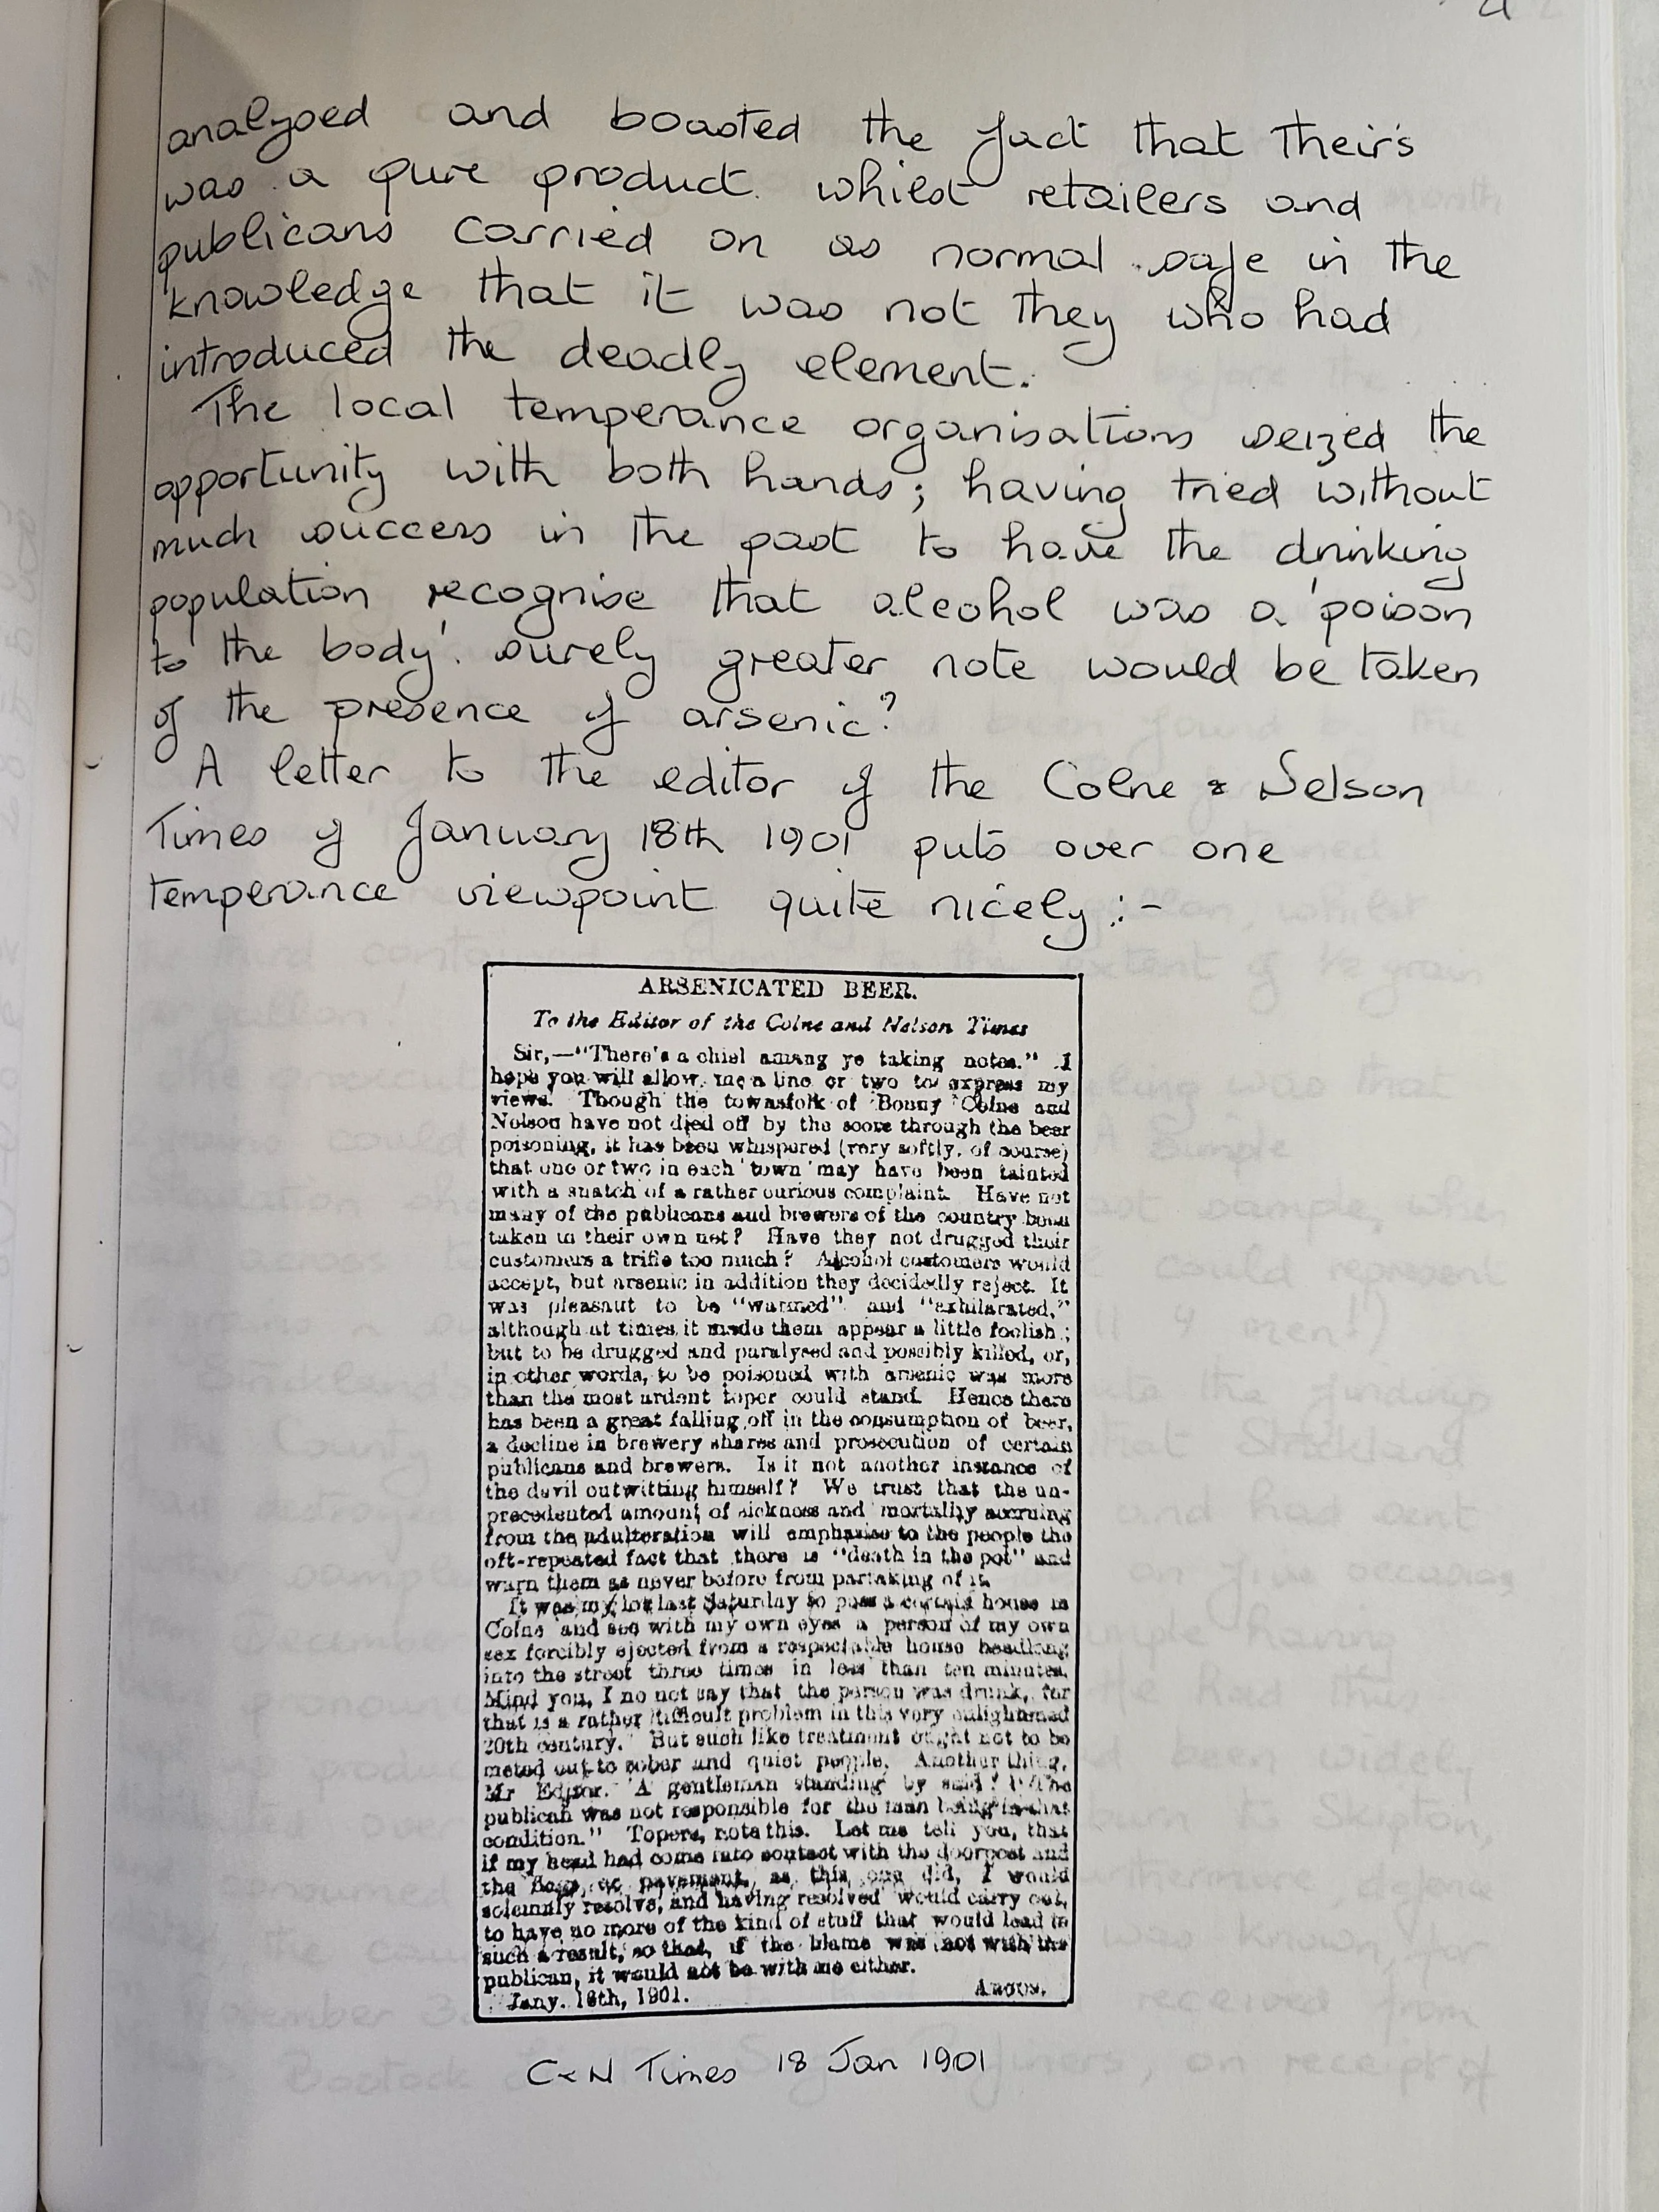 analysed and boasted the fact that their's
was a pure product. whilst retailers and
publicans carried on as normal safe in the
knowledge that it was not they who had
introduced the deadly element.
The local temperance organisations seized the
opportunity with both hands; having tried without
much success in the past to have the drinking
population recognise that alcohol was a 'poison
to the body'. surely greater note would be taken
of the presence of arsenic?
A letter to the editor of the Colne & Nelson
Times of January 18th 1901 puts over one
temperance viewpoint quite nicely :-
ARSENICATED BEER.
To the Editor of the Colne and Nelson Times
Sir,—"There's a chiel amang ye taking notes." I
hope you will allow me a line or two to express my
views. Though the townsfolk of Bonny Colne and
Nelson have not died off by the score through the beer
poisoning, it has been whispered (very softly, of course)
that one or two in each town may have been tainted
with a snatch of a rather curious complaint. Have not
many of the publicans and brewers of the country been
taken in their own net? Have they not drugged their
customers a trifle too much? Alcohol customers would
accept, but arsenic in addition they decidedly reject. It
was pleasant to be "warmed" and "exhilarated,"
although at times it made them appear a little foolish;
but to be drugged and paralysed and possibly killed, or,
in other words, to be poisoned with arsenic was more
than the most ardent toper could stand. Hence there
has been a great falling off in the consumption of beer,
a decline in brewery shares and prosecution of certain
publicans and brewers. Is it not another instance of
the devil outwitting himself? We trust that the un-
precedented amount of sickness and mortality accruing
from the adulteration will emphasise to the people the
oft-repeated fact that there is "death in the pot" and
warn them as never before from partaking of it.
It was my lot last Saturday to pass a certain house in
Colne and see with my own eyes a person of my own
sex forcibly ejected from a respectable house headlong
into the street three times in less than ten minutes.
Mind you, I no not say that the person was drunk, for
that is a rather difficult problem in this very enlightened
20th century. But such like treatment ought not to be
meted out to sober and quiet people. Another thing,
Mr Editor. A gentleman standing by said "The
publican was not responsible for the man being in that
condition." Topers, note this. Let me tell you, that
if my head had come into contact with the doorpost and
the pavement, as this one did, I would
solemnly resolve, and having resolved would carry out,
to have no more of the kind of stuff that would lead to
such a result, so that, if the blame was not with the
publican, it would not be with me either.
Jany. 16th, 1901. ARGUS.
C & N Times 18 Jan 1901